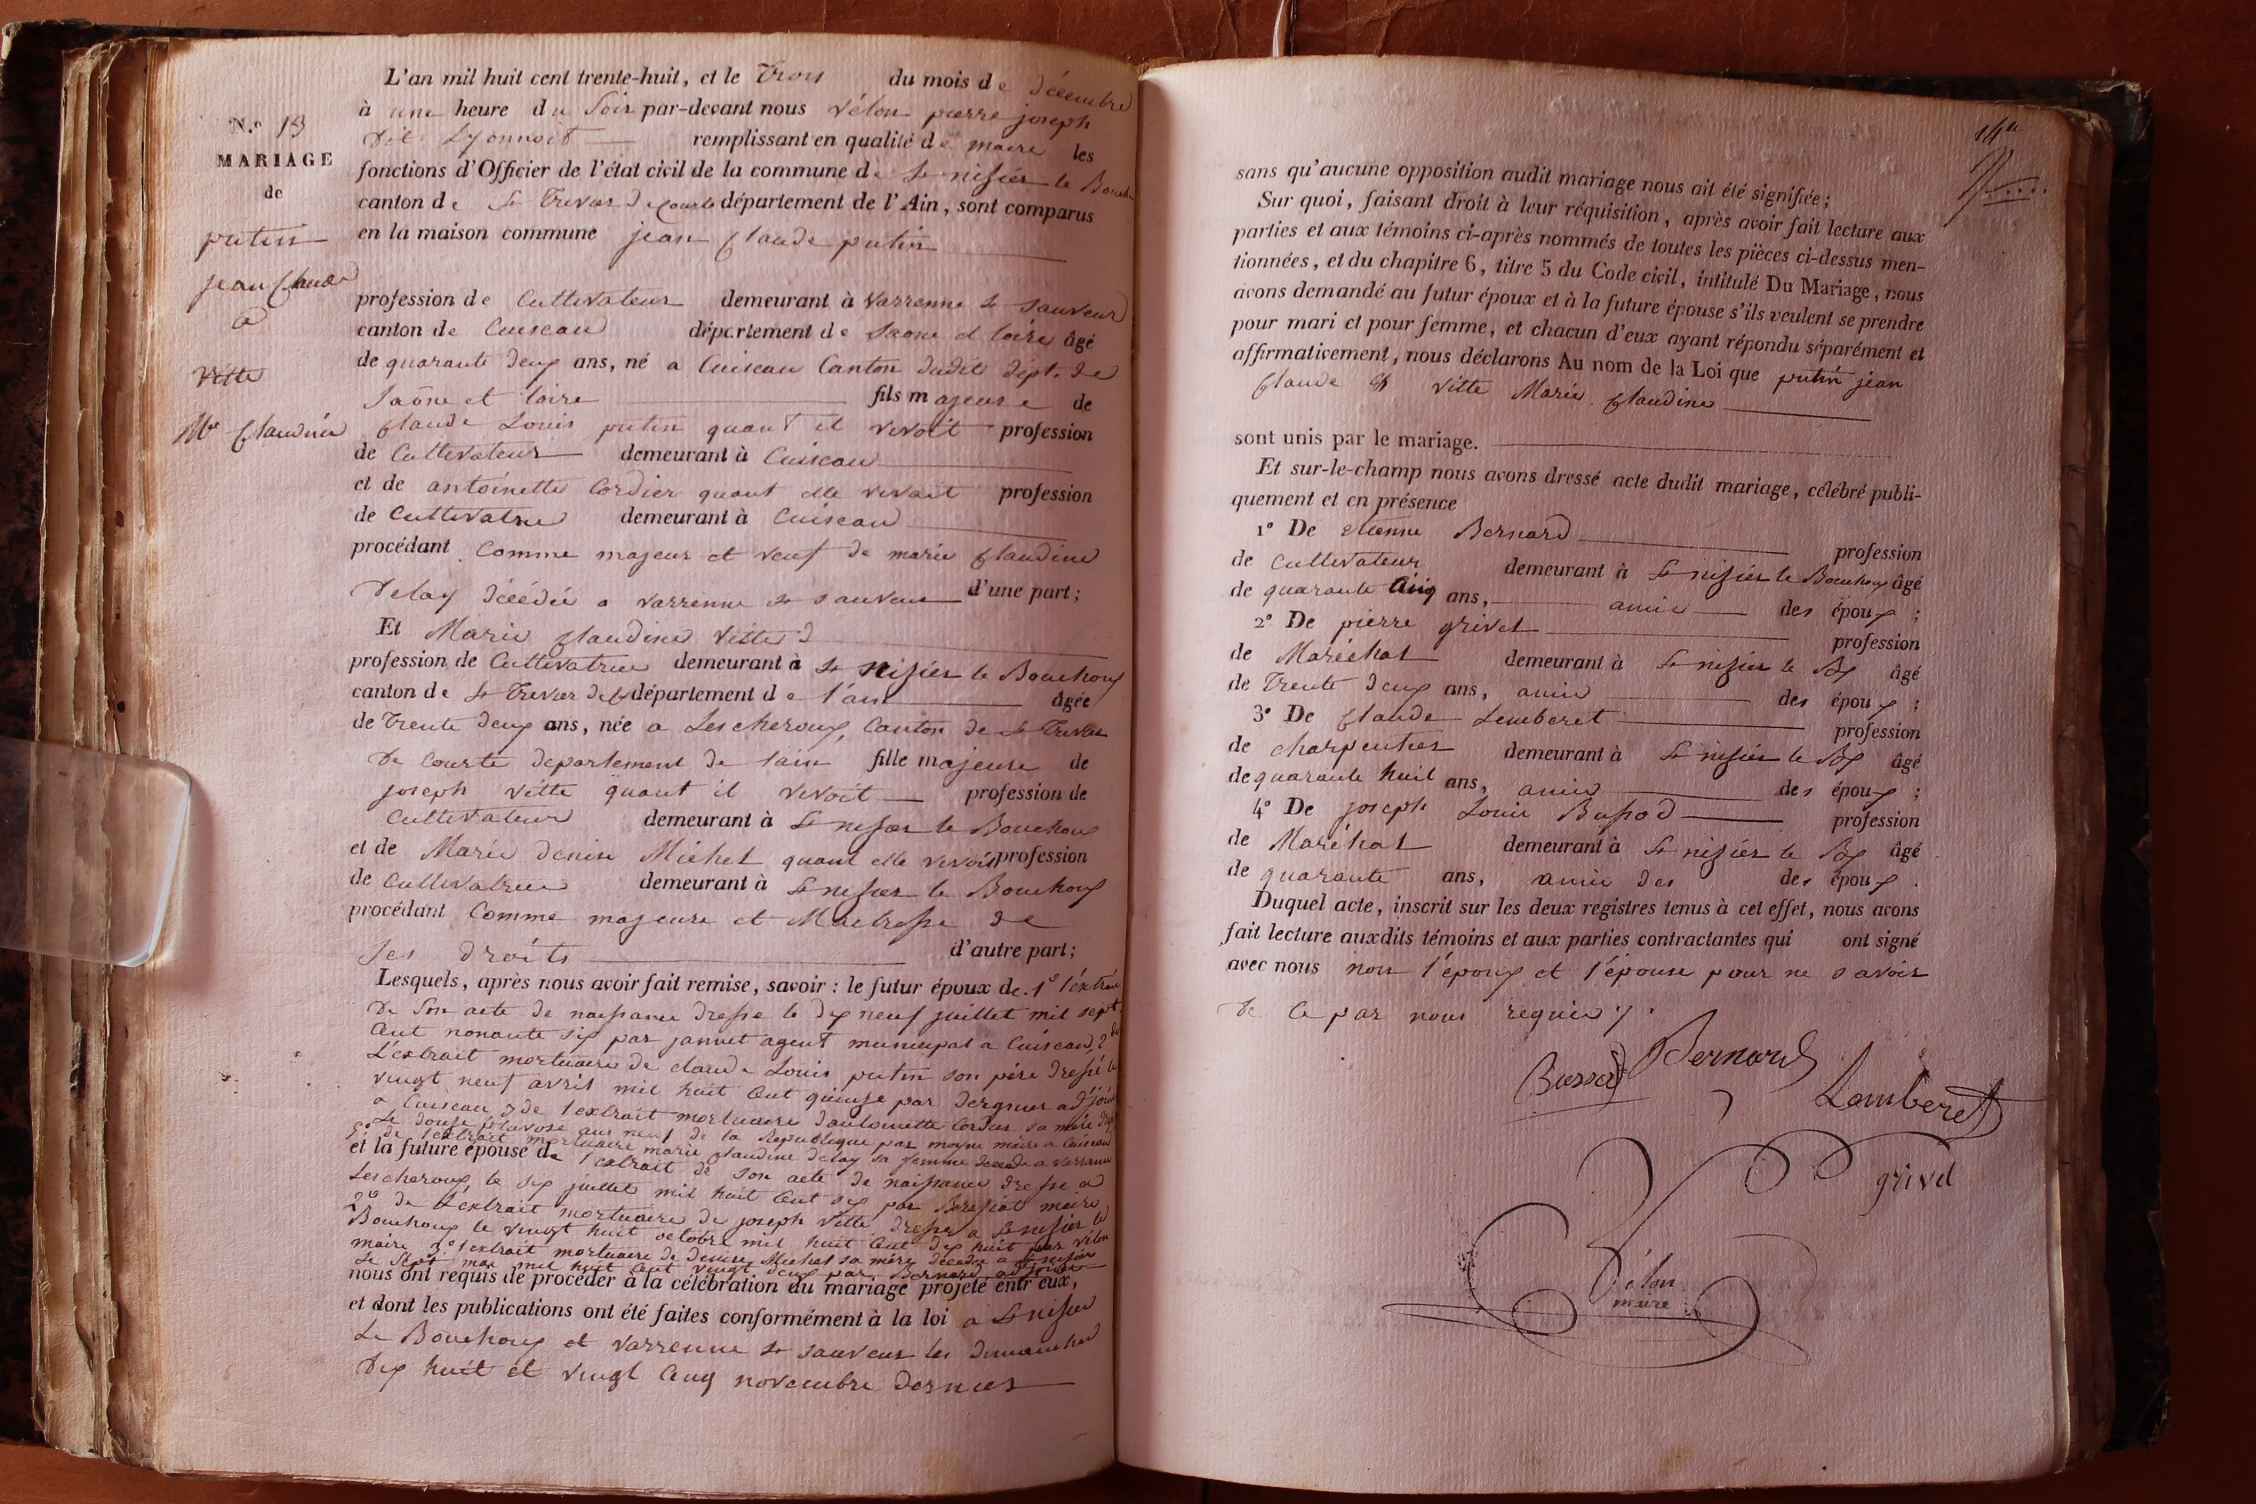 N.o 13
MARIAGE
de
putin
jean Claude
à
Vitte
Mie Claudine
L'an mil huit cent trente-huit, et le Trois du mois de décembre
à une heure du Soir par-devant nous vélon pierre joseph
dit Lyonnois remplissant en qualité de maire les
fonctions d'Officier de l'état civil de la commune de St nisier le Bouchoux
canton de St Trivier de Courte département de l'Ain, sont comparus
en la maison commune jean Claude putin
profession de Cultivateur demeurant à Varrenne St sauveur
canton de Cuiseau département de Saone et loire âgé
de quarante deux ans, né a Cuiseau Canton dudit dépt. de
Saône et loire fils majeur de
Claude Louis putin quant il vivoit profession
de Cultivateur demeurant à Cuiseau
et de antoinette Cordier quant elle vivait profession
de Cultivatrice demeurant à Cuiseau
procédant Comme majeur et veuf de marie Claudine
Delay décédée a varrenne St sauveur d'une part;
Et Marie Claudine Vitte
profession de Cultivatrice demeurant à St nisier le Bouchoux
canton de St Trivier de C département de l'ain âgée
de Trente deux ans, née a Lescheroux, Canton de St Trivier
De Courte departement de l'ain fille majeure de
joseph vitte quant il vivoit profession de
Cultivateur demeurant à St nisier le Bouchoux
et de Marie denise Michel quant elle vivoit profession
de Cultivatrice demeurant à St nisier le Bouchoux
procédant Comme majeure et Maitresse de
ses droits d'autre part;
Lesquels, après nous avoir fait remise, savoir: le futur époux de 1o l'extrait
de son acte de naissance dressé le dix neuf juillet mil sept
Cent nonante six par janvet agent municipal a Cuiseau, 2o de
L'extrait mortuaire de claude Louis putin son père dressé le
vingt neuf avril mil huit Cent quinze par adjoint
a Cuiseau 3 de l'extrait mortuaire d'antoinette Cordier sa mère
Le douze pluviose an neuf de la Republique par moyne maire a Cuiseau
de l'extrait mortuaire marie Claudine delay sa femme décédée a varrenne
et la future épouse de l'extrait de son acte de naissance dressé a
Lescheroux, le six juillet mil huit Cent six par maire
2o de L'extrait mortuaire de joseph Vitte dressé a St nisier le
Bouchoux le vingt huit octobre mil huit Cent dix huit par vélon
maire 3o l'extrait mortuaire de denise Michel sa mère décédée a St nisier
Le sept mai mil huit Cent vingt deux par Bernard adjoint
nous ont requis de procéder à la célébration du mariage projeté entr'eux,
et dont les publications ont été faites conformément à la loi a St nisier
Le Bouchoux et varrenne St sauveur les dimanches
dix huit et vingt Cinq novembre dernier
14e
sans qu'aucune opposition audit mariage nous ait été signifiée;
Sur quoi, faisant droit à leur réquisition, après avoir fait lecture aux
parties et aux témoins ci-après nommés de toutes les pièces ci-dessus men-
tionnées, et du chapitre 6, titre 5 du Code civil, intitulé Du Mariage, nous
avons demandé au futur époux et à la future épouse s'ils veulent se prendre
pour mari et pour femme, et chacun d'eux ayant répondu séparément et
affirmativement, nous déclarons Au nom de la Loi que putin jean
Claude et Vitte Marie Claudine
sont unis par le mariage.
Et sur-le-champ nous avons dressé acte dudit mariage, célébré publi-
quement et en présence
1o De etienne Bernard profession
de Cultivateur demeurant à St nisier le Bouchoux âgé
de quarante Cinq ans, amie des époux;
2o De pierre grivet profession
de Maréchal demeurant à St nisier le Bx âgé
de Trente deux ans, amie des époux;
3o De Claude Lemberet profession
de charpentier demeurant à St nisier le Bx âgé
de quarante huit ans, amie des époux;
4o De joseph Louis Bussod profession
de Maréchal demeurant à St nisier le Bx âgé
de quarante ans, amie des des époux.
Duquel acte, inscrit sur les deux registres tenus à cet effet, nous avons
fait lecture auxdits témoins et aux parties contractantes qui ont signé
avec nous non l'époux et l'épouse pour ne savoir
de Ce par nous requis
Bernard
Bussod
Lamberet
grivel
Vélon
maire